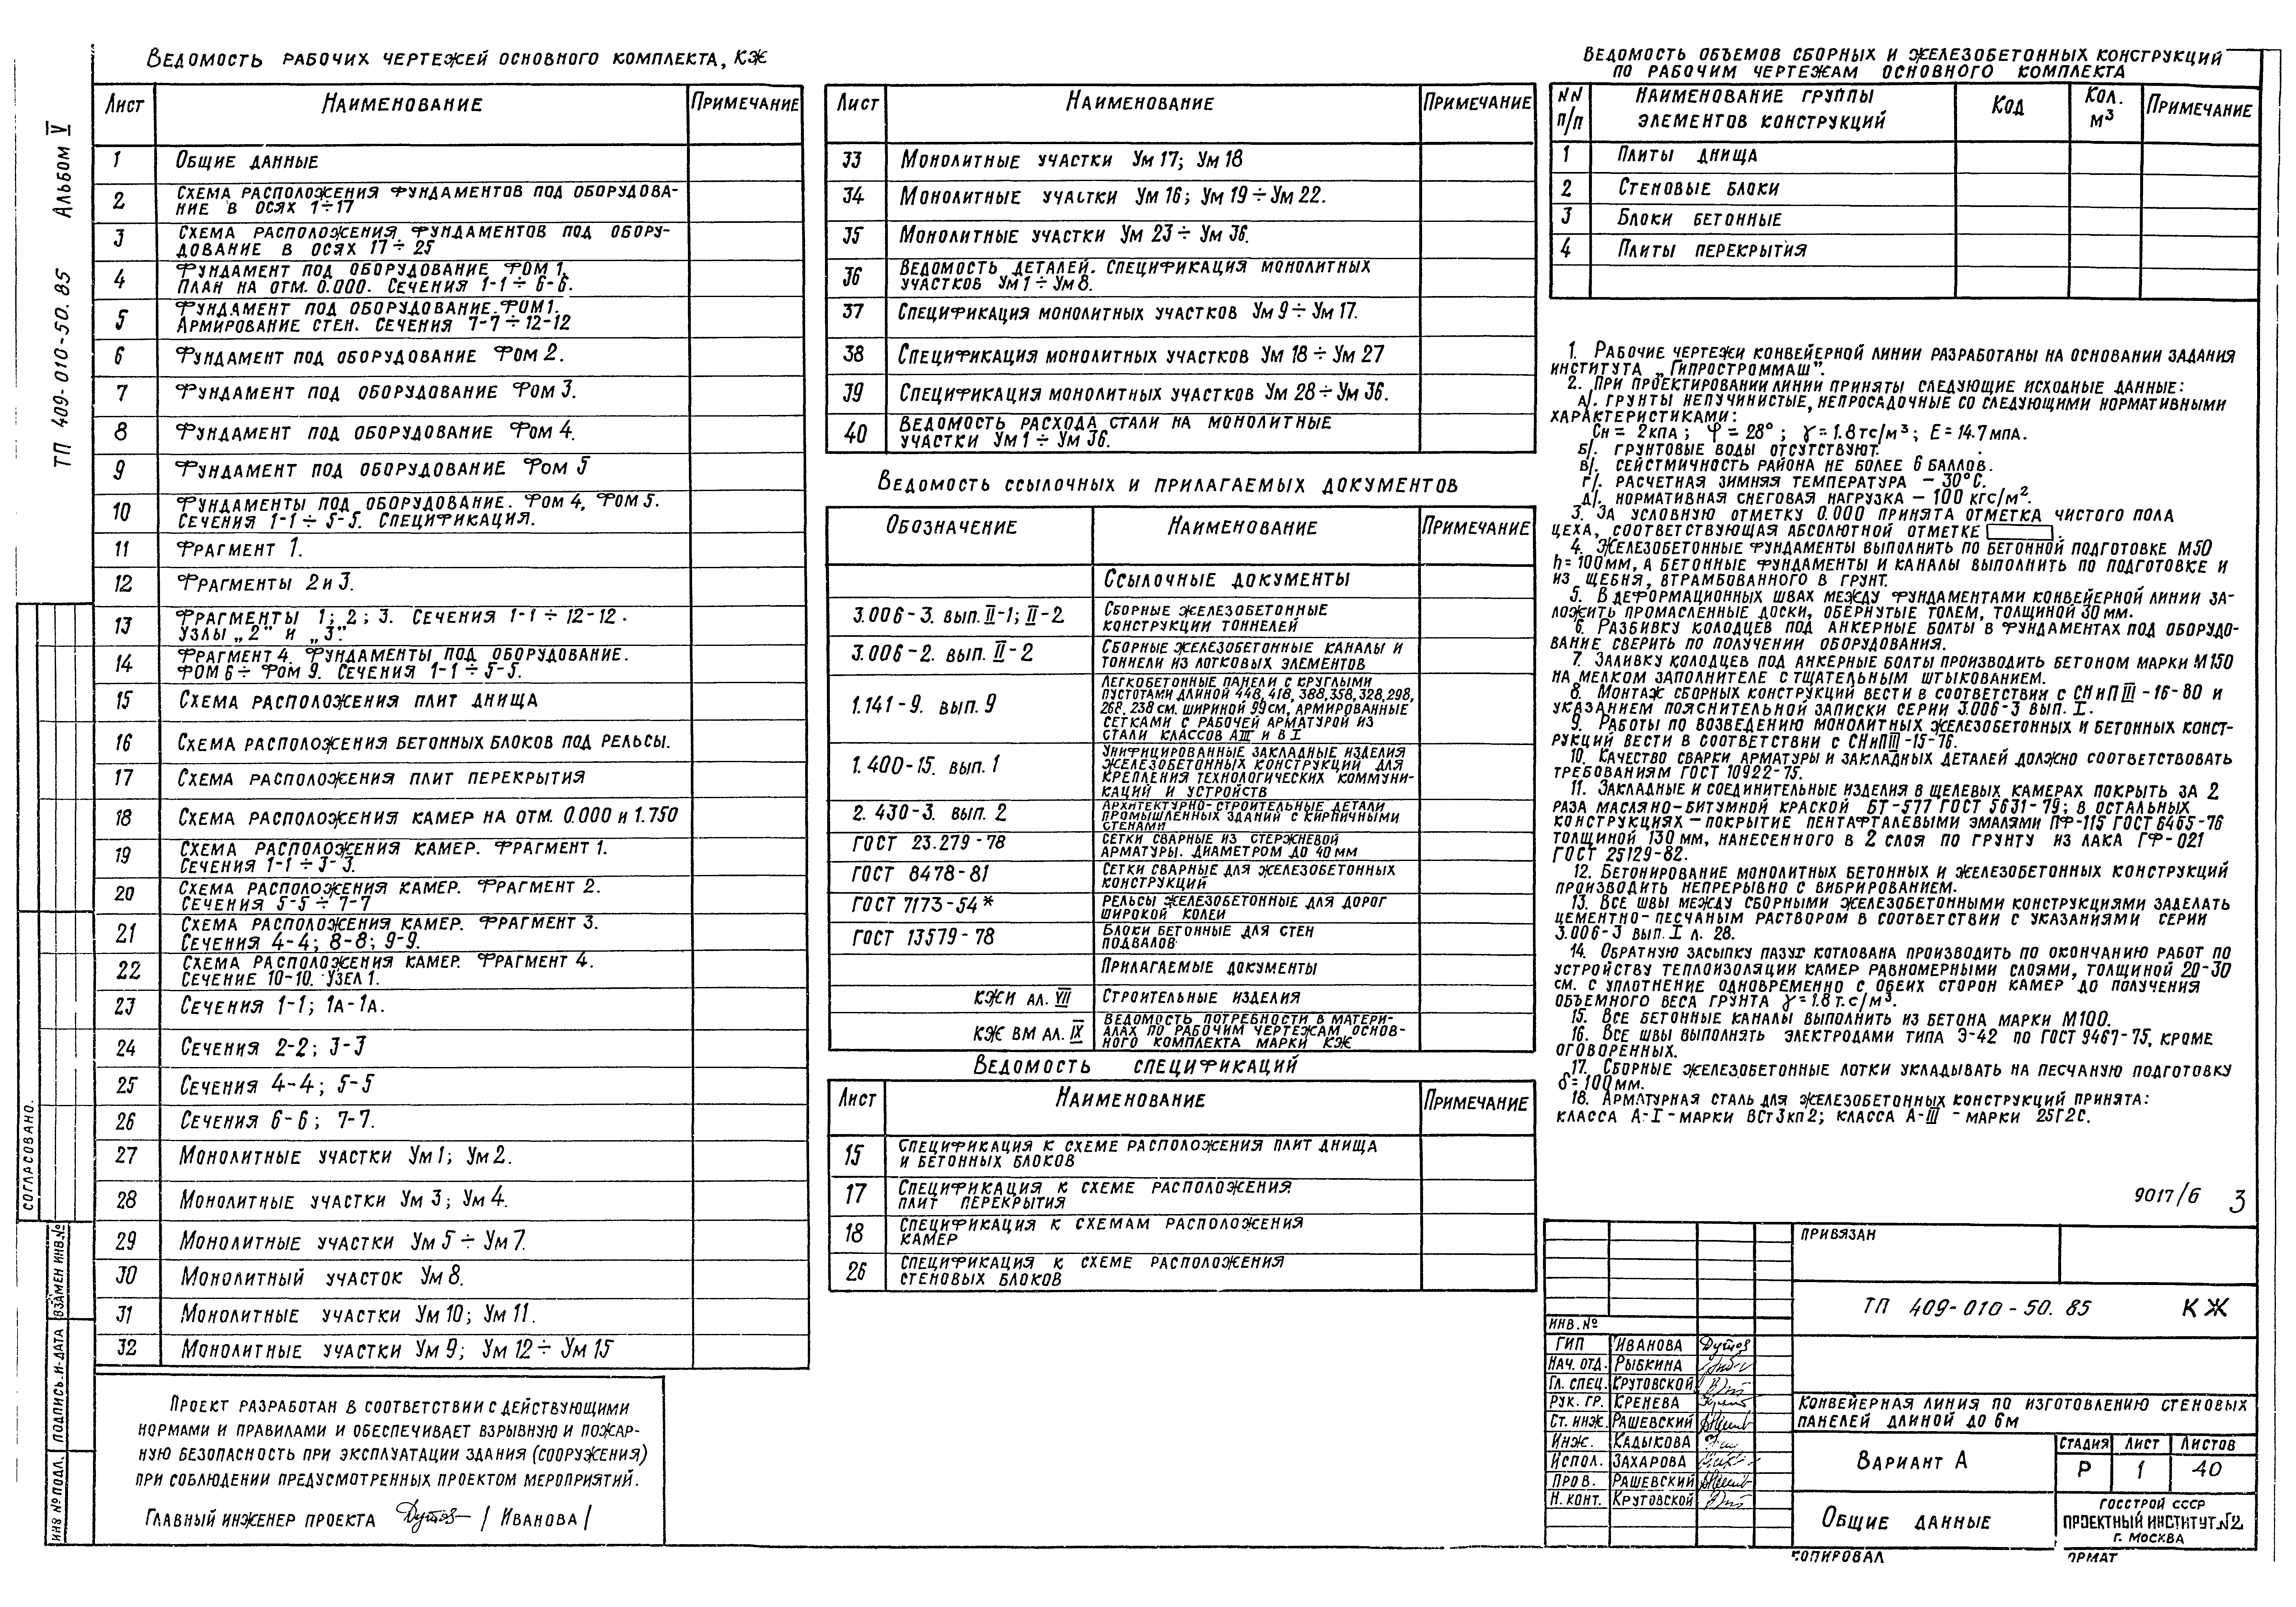 Альбом V
ТП 409-010-50.85
Ведомость рабочих чертежей основного комплекта, КЖ
Лист Наименование Примечание
1 Общие данные
2 Схема расположения фундаментов под оборудова-
ние в осях 1÷17
3 Схема расположения фундаментов под обору-
дование в осях 17÷25
4 Фундамент под оборудование Фом 1.
План на отм. 0.000. Сечения 1-1÷6-6.
5 Фундамент под оборудование. Фом1.
Армирование стен. Сечения 7-7÷12-12
6 Фундамент под оборудование Фом 2.
7 Фундамент под оборудование Фом 3.
8 Фундамент под оборудование Фом 4.
9 Фундамент под оборудование Фом 5
10 Фундаменты под оборудование. Фом 4, Фом 5.
Сечения 1-1÷5-5. Спецификация.
11 Фрагмент 1.
12 Фрагменты 2 и 3.
13 Фрагменты 1; 2; 3. Сечения 1-1÷12-12.
Узлы „2" и „3".
14 Фрагмент 4. Фундаменты под оборудование.
Фом 6÷Фом 9. Сечения 1-1÷5-5.
15 Схема расположения плит днища
16 Схема расположения бетонных блоков под рельсы.
17 Схема расположения плит перекрытия
18 Схема расположения камер на отм. 0.000 и 1.750
19 Схема расположения камер. Фрагмент 1.
Сечения 1-1÷3-3.
20 Схема расположения камер. Фрагмент 2.
Сечения 5-5÷7-7
21 Схема расположения камер. Фрагмент 3.
Сечения 4-4; 8-8; 9-9.
22 Схема расположения камер. Фрагмент 4.
Сечение 10-10. Узел 1.
23 Сечения 1-1; 1а-1а.
24 Сечения 2-2; 3-3
25 Сечения 4-4; 5-5
26 Сечения 6-6; 7-7.
27 Монолитные участки Ум1; Ум2.
28 Монолитные участки Ум 3; Ум 4.
29 Монолитные участки Ум 5÷Ум7.
30 Монолитный участок Ум 8.
31 Монолитные участки Ум 10; Ум 11.
32 Монолитные участки Ум 9; Ум 12÷Ум 15
Проект разработан в соответствии с действующими
нормами и правилами и обеспечивает взрывную и пожар-
ную безопасность при эксплуатации здания (сооружения)
при соблюдении предусмотренных проектом мероприятий.
Главный инженер проекта /Иванова/
Согласовано.
Взамен инв.№
Подпись.и.дата
Инв №подл.
Лист Наименование Примечание
33 Монолитные участки Ум 17; Ум 18
34 Монолитные участки Ум 16; Ум 19÷Ум 22.
35 Монолитные участки Ум 23÷Ум 36.
36 Ведомость деталей. Спецификация монолитных
участков Ум1÷Ум8.
37 Спецификация монолитных участков Ум 9÷Ум 17.
38 Спецификация монолитных участков Ум 18÷Ум 27
39 Спецификация монолитных участков Ум 28÷Ум 36.
40 Ведомость расхода стали на монолитные
участки Ум1÷Ум 36.
Ведомость ссылочных и прилагаемых документов
Обозначение Наименование Примечание
Ссылочные документы
3.006-3. вып. II-1; II-2 Сборные железобетонные
конструкции тоннелей
3.006-2. вып. II-2 Сборные железобетонные каналы и
тоннели из лотковых элементов
1.141-9. вып. 9 Легкобетонные панели с круглыми
пустотами длиной 448, 418, 388, 358, 328, 298,
268, 238 см. шириной 99см, армированные
сетками с рабочей арматурой из
стали классов АIII и В I
1.400-15. вып. 1 Унифицированные закладные изделия
железобетонных конструкций для
крепления технологических коммуни-
каций и устройств
2.430-3. вып. 2 Архитектурно-строительные детали
промышленных зданий с кирпичными
стенами
ГОСТ 23.279-78 Сетки сварные из стержневой
арматуры. диаметром до 40мм
ГОСТ 8478-81 Сетки сварные для железобетонных
конструкций
ГОСТ 7173-54* Рельсы железобетонные для дорог
широкой колеи
ГОСТ 13579-78 Блоки бетонные для стен
подвалов
Прилагаемые документы
КЖИ ал. VII Строительные изделия
КЖ ВМ ал. IX Ведомость потребности в матери-
алах по рабочим чертежам основ-
ного комплекта марки КЖ
Ведомость спецификаций
Лист Наименование Примечание
15 Спецификация к схеме расположения плит днища
и бетонных блоков
17 Спецификация к схеме расположения
плит перекрытия
18 Спецификация к схемам расположения
камер
26 Спецификация к схеме расположения
стеновых блоков
Ведомость объемов сборных и железобетонных конструкций
по рабочим чертежам основного комплекта
NN п/п Наименование группы элементов конструкций Код Кол. м³ Примечание
1 Плиты днища
2 Стеновые блоки
3 Блоки бетонные
4 Плиты перекрытия
1. Рабочие чертежи конвейерной линии разработаны на основании задания
института „Гипростроммаш".
2. При проектировании линии приняты следующие исходные данные:
а/. грунты непучинистые, непросадочные со следующими нормативными
характеристиками:
Сн = 2кпа; φ = 28°; γ = 1.8тс/м³; Е = 14.7мпа.
б/. грунтовые воды отсутствуют.
в/. сейстмичность района не более 6 баллов.
г/. расчетная зимняя температура – 30°С.
д/. нормативная снеговая нагрузка – 100 кгс/м².
3. За условную отметку 0.000 принята отметка чистого пола
цеха, соответствующая абсолютной отметке .
4. Железобетонные фундаменты выполнить по бетонной подготовке М50
h=100мм, а бетонные фундаменты и каналы выполнить по подготовке и
из щебня, втрамбованного в грунт.
5. В деформационных швах между фундаментами конвейерной линии за-
ложить промасленные доски, обернутые толем, толщиной 30мм.
6. Разбивку колодцев под анкерные болты в фундаментах под оборудо-
вание сверить по получении оборудования.
7. Заливку колодцев под анкерные болты производить бетоном марки М150
на мелком заполнителе с тщательным штыкованием.
8. Монтаж сборных конструкций вести в соответствии с СНиП III-16-80 и
указанием пояснительной записки серии 3.006-3 вып. I.
9. Работы по возведению монолитных железобетонных и бетонных конст-
рукций вести в соответствии с СНиП III-15-76.
10. Качество сварки арматуры и закладных деталей должно соответствовать
требованиям ГОСТ 10922-75.
11. Закладные и соединительные изделия в щелевых камерах покрыть за 2
раза масляно-битумной краской БТ-577 ГОСТ 5631-79; в остальных
конструкциях – покрытие пентафталевыми эмалями ПФ-115 ГОСТ 6465-76
толщиной 130мм, нанесенного в 2 слоя по грунту из лака ГФ-021
ГОСТ 25129-82.
12. Бетонирование монолитных бетонных и железобетонных конструкций
производить непрерывно с вибрированием.
13. Все швы между сборными железобетонными конструкциями заделать
цементно-песчаным раствором в соответствии с указаниями серии
3.006-3 вып. I л. 28.
14. Обратную засыпку пазух котлована производить по окончанию работ по
устройству теплоизоляции камер равномерными слоями, толщиной 20-30
см. с уплотнение одновременно с обеих сторон камер до получения
объемного веса грунта γ=1.8т.с/м³.
15. Все бетонные каналы выполнить из бетона марки М100.
16. Все швы выполнять электродами типа Э-42 по ГОСТ 9467-75, кроме
оговоренных.
17. Сборные железобетонные лотки укладывать на песчаную подготовку
δ=100мм.
18. Арматурная сталь для железобетонных конструкций принята:
класса А-I-марки ВСт3кп2; класса А-III - марки 25Г2С.
9017/6 3
Привязан
Инв.№
ТП 409-010-50.85 КЖ
ГИП Иванова
Нач. отд. Рыбкина
Гл. спец. Крутовской
Рук. гр. Кренева
Ст. инж. Рашевский
Инж. Кадыкова
Испол. Захарова
Пров. Рашевский
Н. конт. Крутовской
Конвейерная линия по изготовлению стеновых
панелей длиной до 6м
Вариант А
Стадия Лист Листов
Р 1 40
Общие данные
Госстрой СССР
Проектный институт №2
г. Москва
копировал ормат